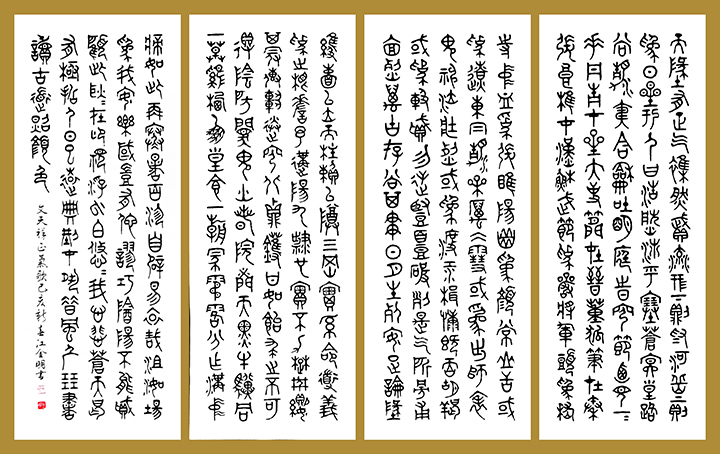 天地有正氣雜然賦流形下則為河嶽上則
為日星於人曰浩然沛乎塞蒼冥皇路
當清夷含和吐明庭時窮節乃見一一
垂丹青在齊太史簡在晉董狐筆在秦
張良椎在漢蘇武節為嚴將軍頭為嵇
侍中血為張睢陽齒為顏常山舌或
為遼東帽清操厲冰雪或為出師表
鬼神泣壯烈或為渡江楫慷慨吞胡羯
或為擊賊笏逆豎頭破裂是氣所磅
礴凜烈萬古存當其貫日月生死安足論地
維賴以立天柱賴以尊三綱實系命道義
為之根嗟予遘陽九隸也實不力楚囚纓
其冠傳車送窮北鼎鑊甘如飴求之不可
得陰房闃鬼火春院閟天黑牛驥同
一皂雞棲鳳凰食一朝蒙霧露分作溝中
瘠如此再寒暑百沴自辟易哀哉沮洳場
為我安樂國豈有他繆巧陰陽不能賊
顧此耿耿在仰視浮雲白悠悠我心悲蒼天曷
有極哲人日已遠典刑在夙昔風簷展書
讀古道照顏色
文天祥正氣歌己亥新春江金明書